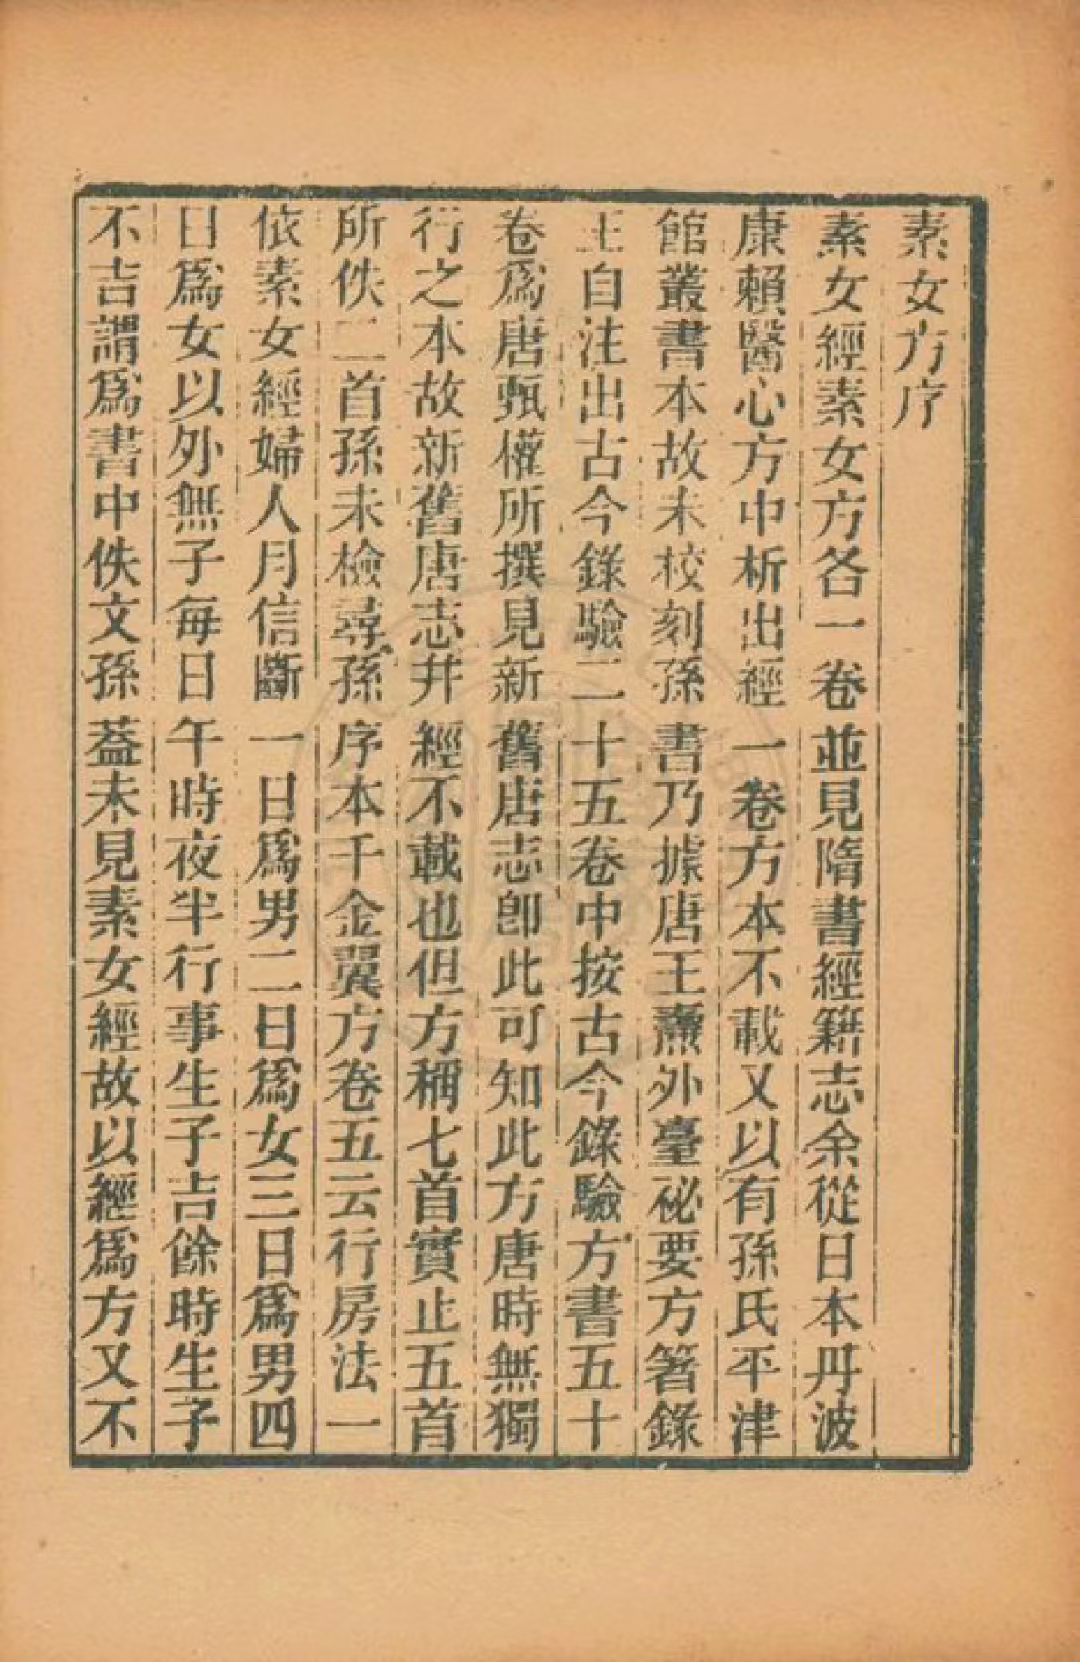 素女方序
素女經素女方各一卷並見隋書經籍志余從日本丹波
康賴醫心方中析出經一卷方本不載又以有孫氏平津
館叢書本故未校刻孫書乃據唐王燾外臺祕要方箸錄
王自注出古今錄驗二十五卷中按古今錄驗方書五十
卷爲唐甄權所撰見新舊唐志卽此可知此方唐時無獨
行之本故新舊唐志幷經不載也但方稱七首實止五首
所佚二首孫未檢尋孫序本千金翼方卷五云行房法一
依素女經婦人月信斷一日爲男二日爲女三日爲男四
日爲女以外無子每日午時夜半行事生子吉餘時生子
不吉謂爲書中佚文孫葢未見素女經故以經爲方又不